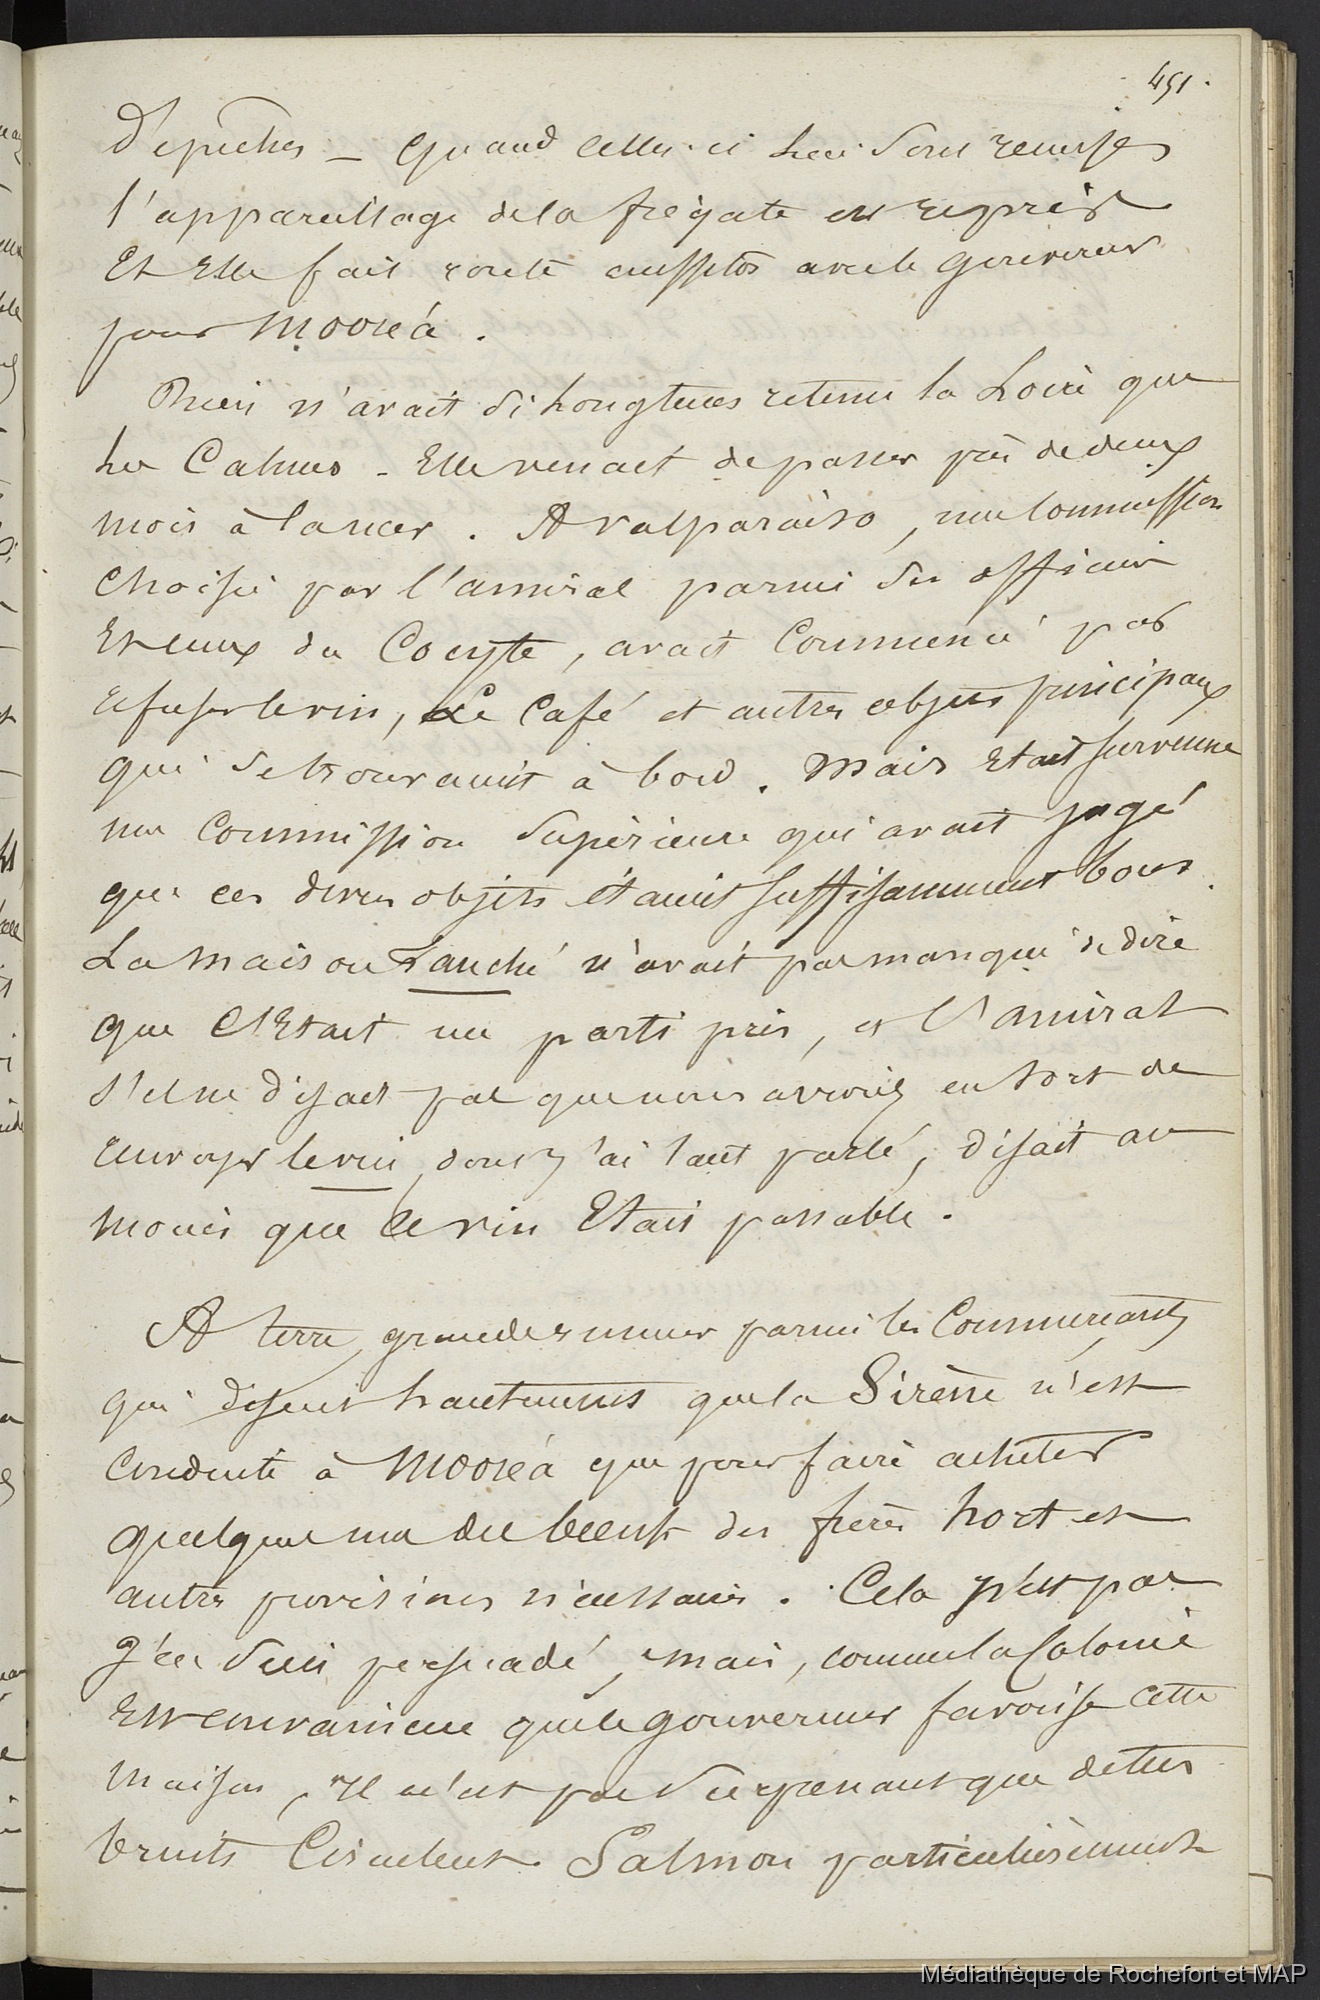 451.
Dépêches — Quand celles-ci lui sont remises
l'appareillage de la frégate est repris
Et Elle fait route aussitôt avec le gouverneur
pour Mooréa.
Rien n'avait si longtems retenu la Loire que
les Calmes - Elle venait de passer près de deux
mois à l'ancer. A valparaiso, une Commission
choisie par l'amiral parmi ses officiers
Et ceux du Cocyte, avait Commencé par
refuser le vin, Le Café et autres objets principaux
qui se trouvaient à bord. Mais Etait survenue
une Commission supérieure qui avait jugé
que ces divers objets étaient suffisamment bons.
La maison Lanché n'avait pas manqué de dire
que C'Etait un parti pris, et l'amiral
s'il ne disait pas que nous avions eu tort de
renvoyer le vin, dont j'ai tant parlé, disait au
moins que ce vin Etait passable.
A terre, grande rumeur parmi les Commerçants
qui disent hautement que la Sirène n'est
conduite à Mooréa que pour faire acheter
quelque peu du boeuf des frères hort et
autres provisions nécessaires. Cela n'est pas
J'en suis persuadé, mais, comme la Colonie
Est convaincue que le gouverneur favorise cette
maison, Il n'est pas surprenant que de tels
bruits Circulent. Salmon particulièrement
Médiathèque de Rochefort et MAP